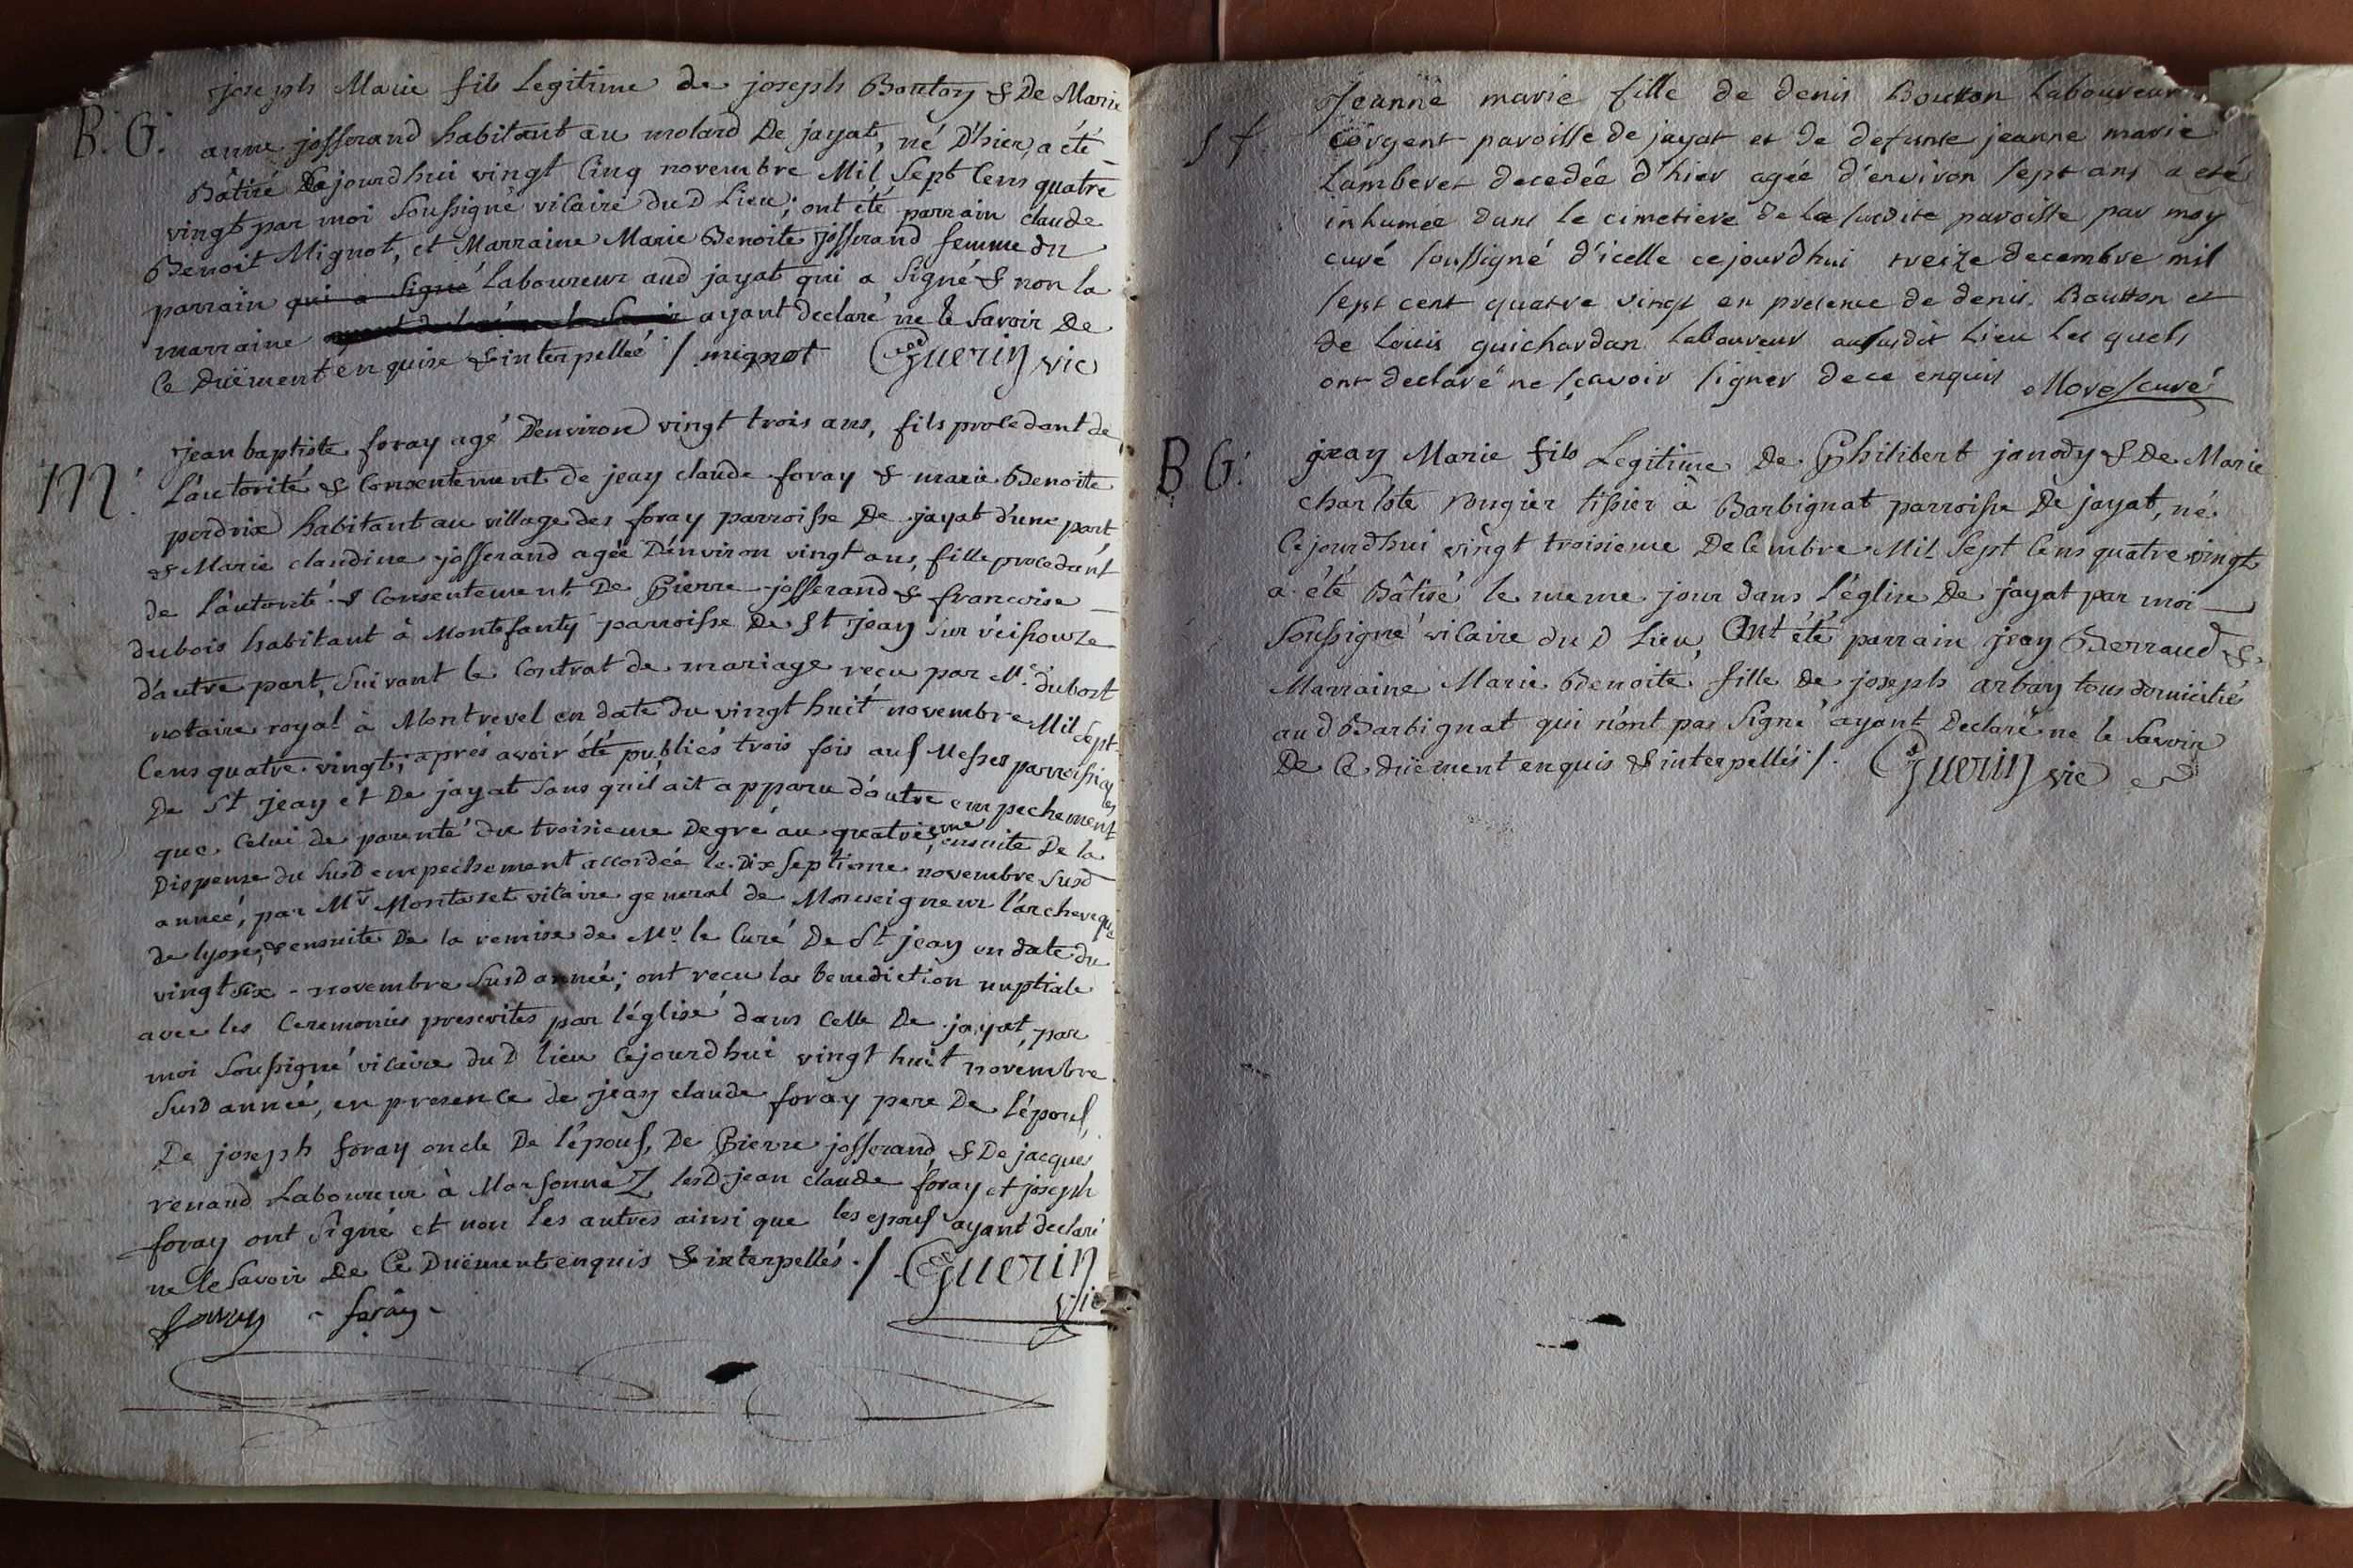 joseph Marie fils Legitime de joseph Bouton & De Marie
B. G. anne josserand habitant au molard De jayat, né D'hier, a été
Bâtisé Cejourdhui vingt Cinq novembre Mil Sept Cens quatre
vingt par moi Soussigné vicaire dud Lieu; ont été parrain claude
Benoit Mignot, et Marraine Marie Benoite josserand femme du
parrain qui a signé Laboureur aud jayat qui a Signé & non la
marraine ayant declaré ne le Savoir De
Ce Duëment enquise & interpelleé / mignot Guerin vic
jean baptiste foray agé D'environ vingt trois ans, fils procedant de
M. L'autorité & Consentement de jean claude foray & marie Benoite
perdrix habitant au village des foray parroisse De jayat d'une part,
& Marie claudine josserand agée D'environ vingt ans, fille procedant
de L'autorité & Consentement De Pierre josserand & francoise
dubois habitant à Montfanty parroisse De St jean Sur veissouze
d'autre part, Suivant le Contrat de mariage recu par Me. dubost
notaire royal à Montrevel en date du vingt huit novembre Mil Sept
Cens quatre vingt; après avoir été publiés trois fois aux Messes parroissiales
De St jean et De jayat Sans quil ait apparu d'autre empechement
que Celui de parenté du troisieme Degré au quatrieme, ensuite De la
Dispense du Susd empechement accordée le Dix Septieme novembre Susd
anneé, par Mr Montaset vicaire general de Monseigneur l'archeveque
de lyon, & ensuite De la remise de Mr le Curé De St jean en date du
vingt six novembre Susd anneé; ont recu la benediction nuptiale
avec les Ceremonies prescrites par l'église dans Celle De jayat, par
moi Soussigné vicaire dud lieu Cejourdhui vingt huit novembre
Susd anneé, en presence de jean claude foray pere De l'epoux,
De joseph foray oncle De l'époux, De Pierre josserand, & De jacques
renand Laboureur à Marsonnaz lesd jean claude foray et joseph
foray ont Signé et non les autres ainsi que les epoux ayant declaré
ne le Savoir De Ce Duëment enquis & interpellés ./ Guerin
foray - foray - vic
Jeanne marie fille de denis Boutton Labouveur
S f Corgent paroisse de jayat et de defunte jeanne marie
Lamberet decedée d'hier agée d'environ sept ans a eté
inhumée dans le cimetiere de la susdite paroisse par moy
curé soussigné d'icelle cejourdhui treize decembre mil
sept cent quatre vingt en presence de denis Boutton et
de Louis guichardan Laboureur aususdit Lieu Les quels
ont declaré ne sçavoir signer de ce enquis Morel curé
B G. jean Marie fils Legitime De Philibert janody & De Marie
charlote rougier tissier à Barbignat parroisse De jayat, né
Cejourdhui vingt troisieme Decembre Mil Sept Cens quatre vingt
a été Bâtisé le meme jour dans l'église De jayat par moi
Soussigné vicaire dud Lieu, Ont été parrain jean Berraud &
Marraine Marie Benoite fille De joseph arban tous domiciliés
aud Barbignat qui n'ont pas Signé ayant Declaré ne le Savoir
De Ce Duëment enquis & interpellés /. Guerin vic